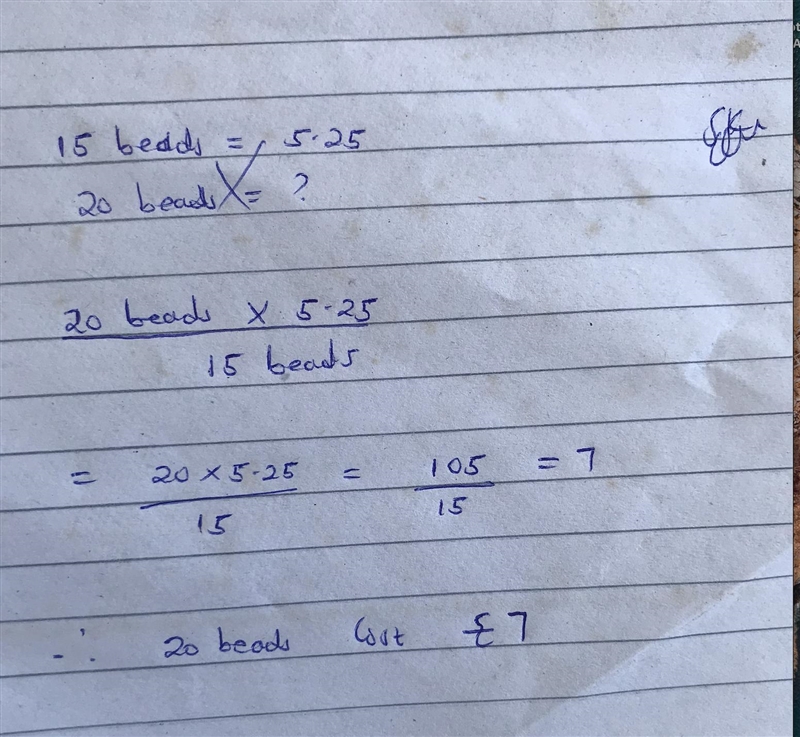 15 beads = 5.25
20 beads = ?
20 beads × 5.25
15 beads
= 20 × 5.25 = 105 = 7
15 15
∴ 20 beads Cost £7